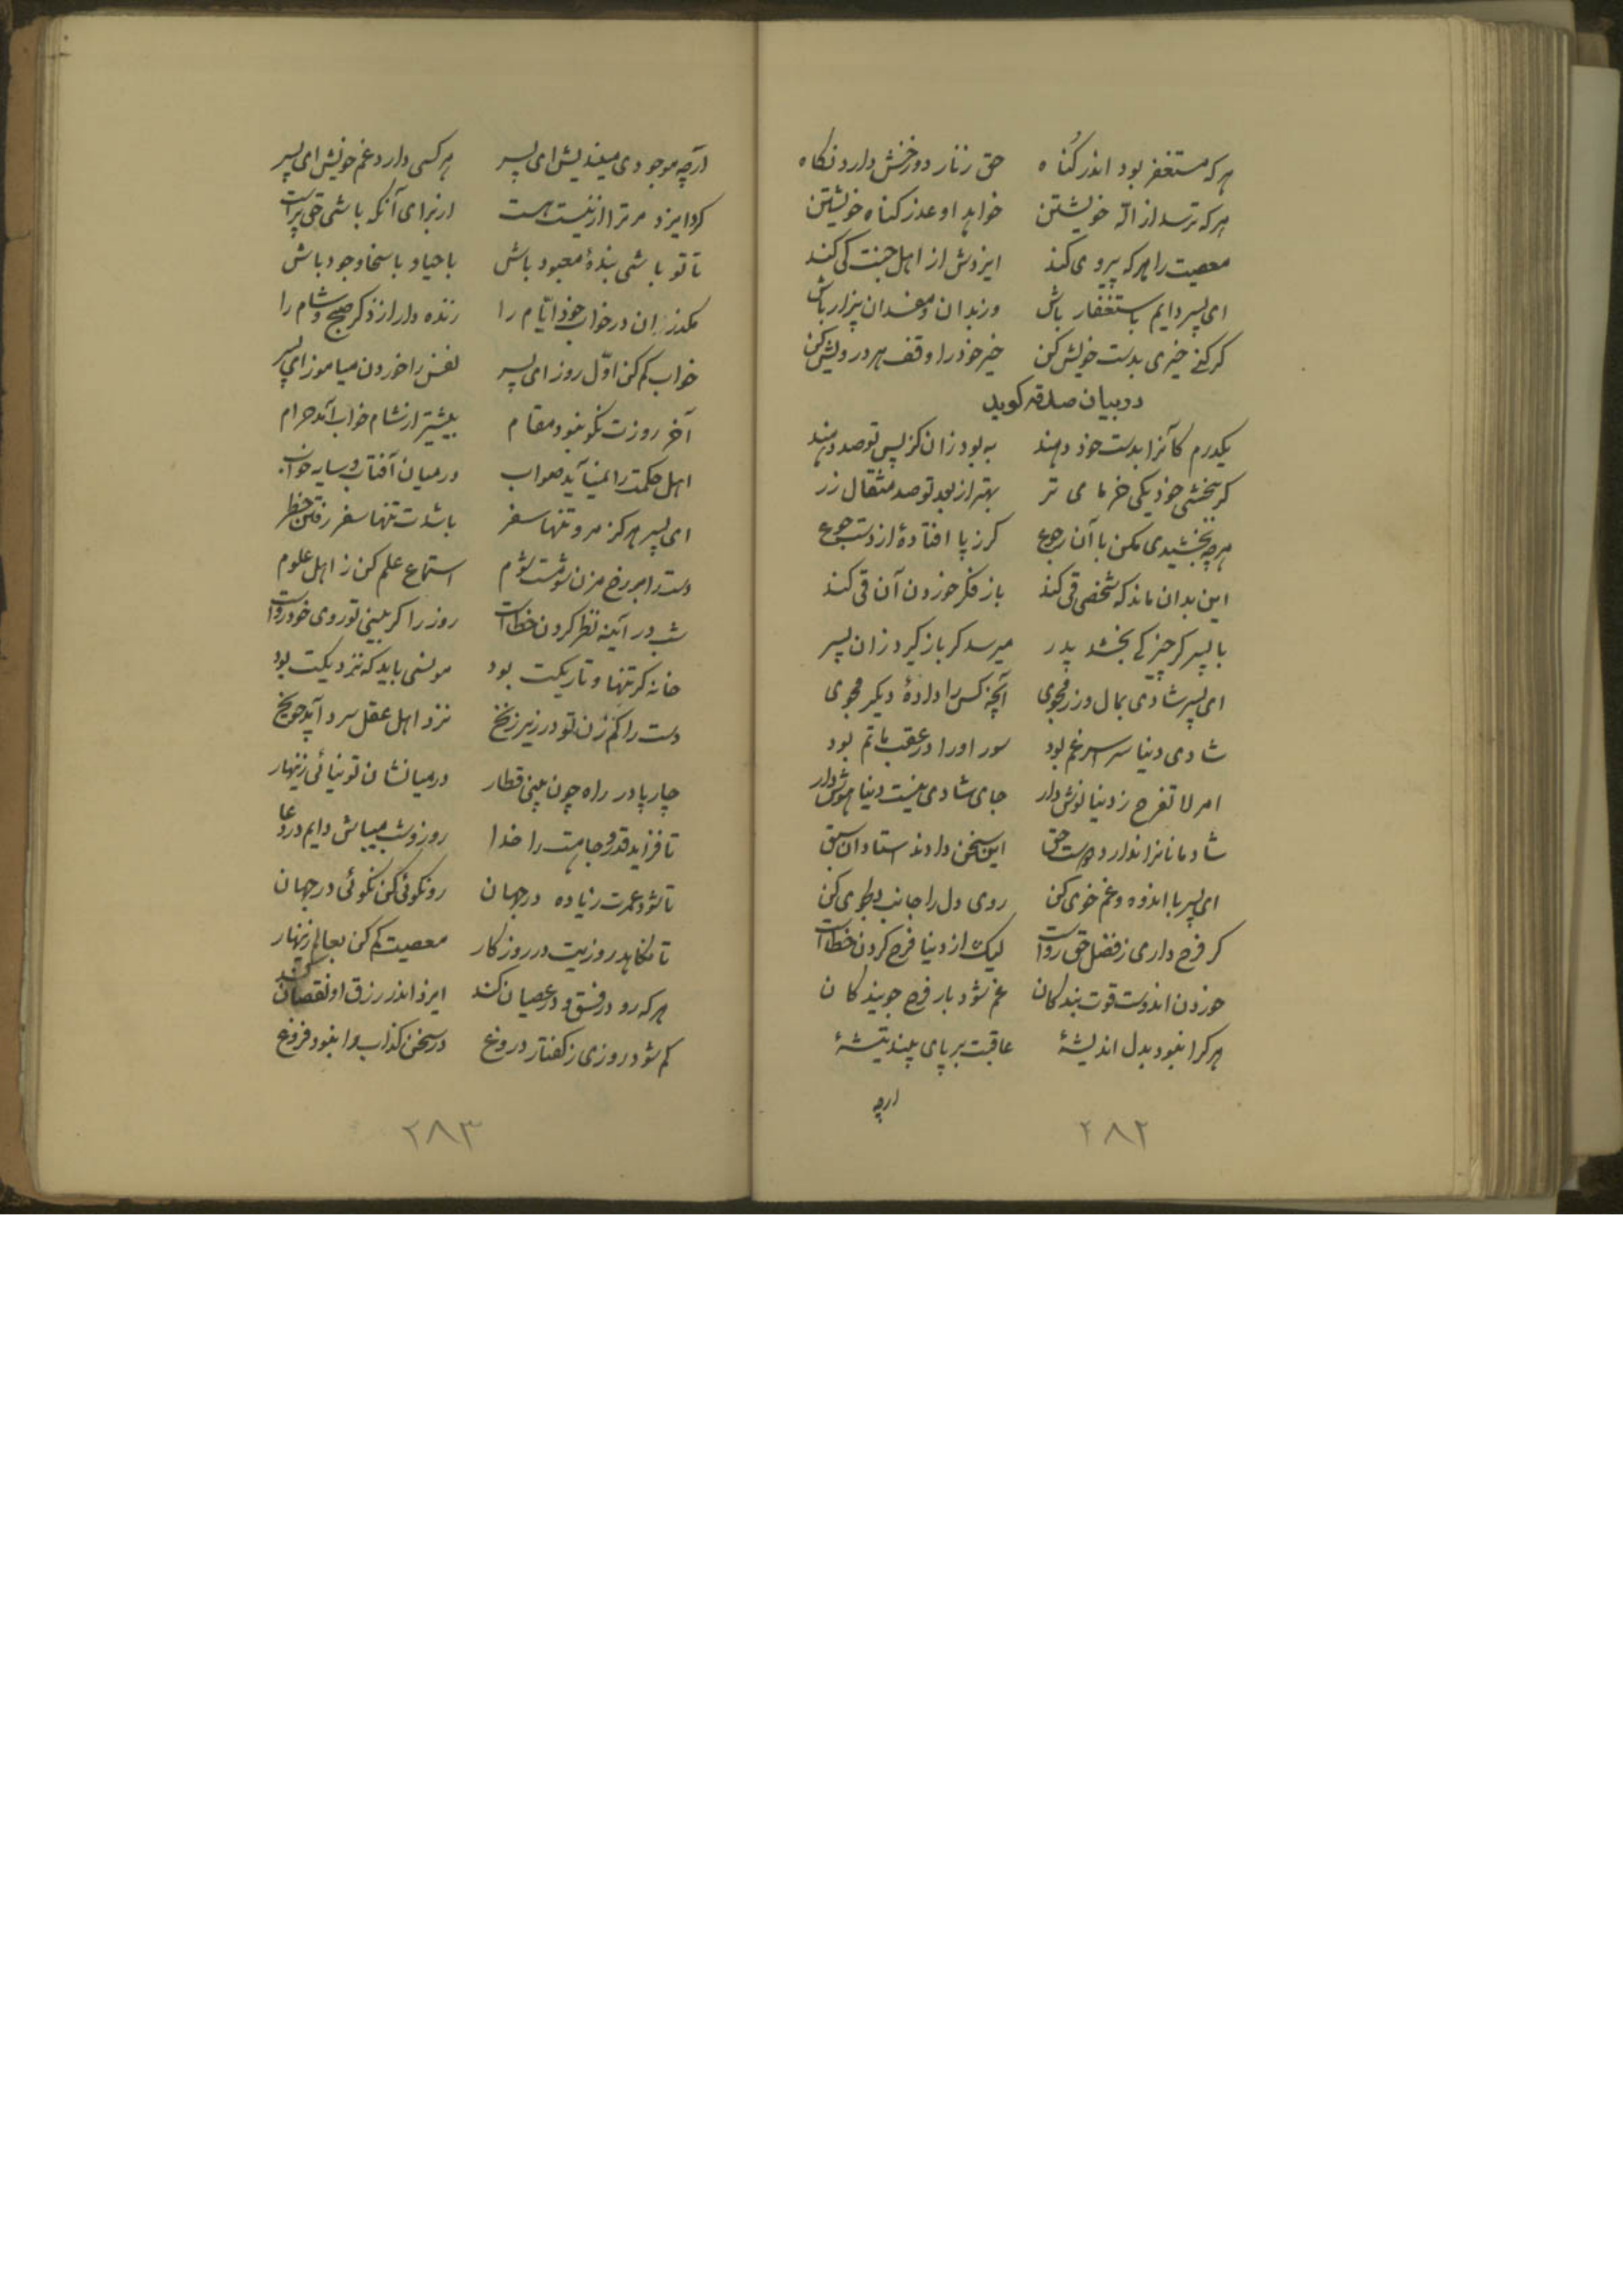 هرکه مستغفر بود اندر گناه حق زنار دوزخش دارد نکاه
هرکه ترسد از اله خویشتن خواهد او عذر کناه خویشتن
معصیت را هرکه پیروی کند ایزدش از اهل جنت کی کند
ای پسر دایم باستغفار باش وز بدان و مفسدان بیزار باش
کر کنی خیری بدست خویش کن خیر خود را وقف هر درویش کن
در بیان صدقه کوید
یکدرم کانرا بدست خود دهند به بود زان کز پس تو صد دهند
کر ببخشی خود یکی خرمای تر بهتر از بعد تو صد مثقال زر
هرچه بخشیدی مکن با آن رجوع کر ز پا افتادهٔ از دست جوع
این بدان ماند که شخصی قی کند باز فکر خوردن آن قی کند
با پسر کر چیزکی بخشد پدر میرسد کر باز کیرد زان پسر
ای پسر شادی بمال و زر مجوی آنچه کس را دادهٔ دیکر مجوی
شادی دنیا سراسر غم بود سور او را در عقب ماتم بود
امر لا تفرح ز دنیا کوش دار جای شادی نیست دنیا هوش دار
شادمانانرا ندارد دوست حق این سخن دادند استادان سبق
ای پسر با اندوه و غم خوی کن روی دل را جانب دلجوی کن
کر فرح داری ز فضل حق رواست لیک از دنیا فرح کردن خطاست
خوردن اندوست قوت بندکان غم شود بار فرح جویندکان
هرکرا نبود بدل اندیشهٔ عاقبت بر پای بیند تیشهٔ
ارچه
۲۸۲
ارچه موجودی میندیش ای پسر هرکسی دارد غم خویش ای پسر
کرد ایزد مر ترا از نیست هست از برای آنکه باشی حق پرست
تا تو باشی بندهٔ معبود باش با حیا و با سخا و جود باش
مکذران در خواب خود ایّام را زنده دار از ذکر صبح و شام را
خواب کم کن اوّل روز ای پسر نفس را خوردن میاموز ای پسر
آخر روزت نکو نبود مقام بیشتر از شام خواب آمد حرام
اهل حکمت را نمیآید صواب در میان آفتاب و سایه خواب
ای پسر هرکز مرو تنها سفر باشدت تنها سفر رفتن خطر
دست را بر رخ مزن شومست شوم استماع علم کن ز اهل علوم
شب در آینه نظر کردن خطاست روز را کر بینی تو روی خود رواست
خانه کر تنها و تاریکت بود مونسی باید که نزدیکت بود
دست را کم زن تو در زیر زنخ نزد اهل عقل سرد آید چو یخ
چارپا در راه چون بینی قطار در میانشان تو نیائی زینهار
تا فزاید قدر و جاهت را خدا روز و شب میباش دایم در دعا
تا شود عمرت زیاده در جهان رو نکوئی کن نکوئی در جهان
تا نکاهد روزیت در روزکار معصیت کم کن بعالم زینهار
هرکه رو در فسق و در عصیان کند ایزد اندر رزق او نقصان کند
کم شود روزی ز کفتار دروغ در سخن کذاب را نبود فروغ
۲۸۳